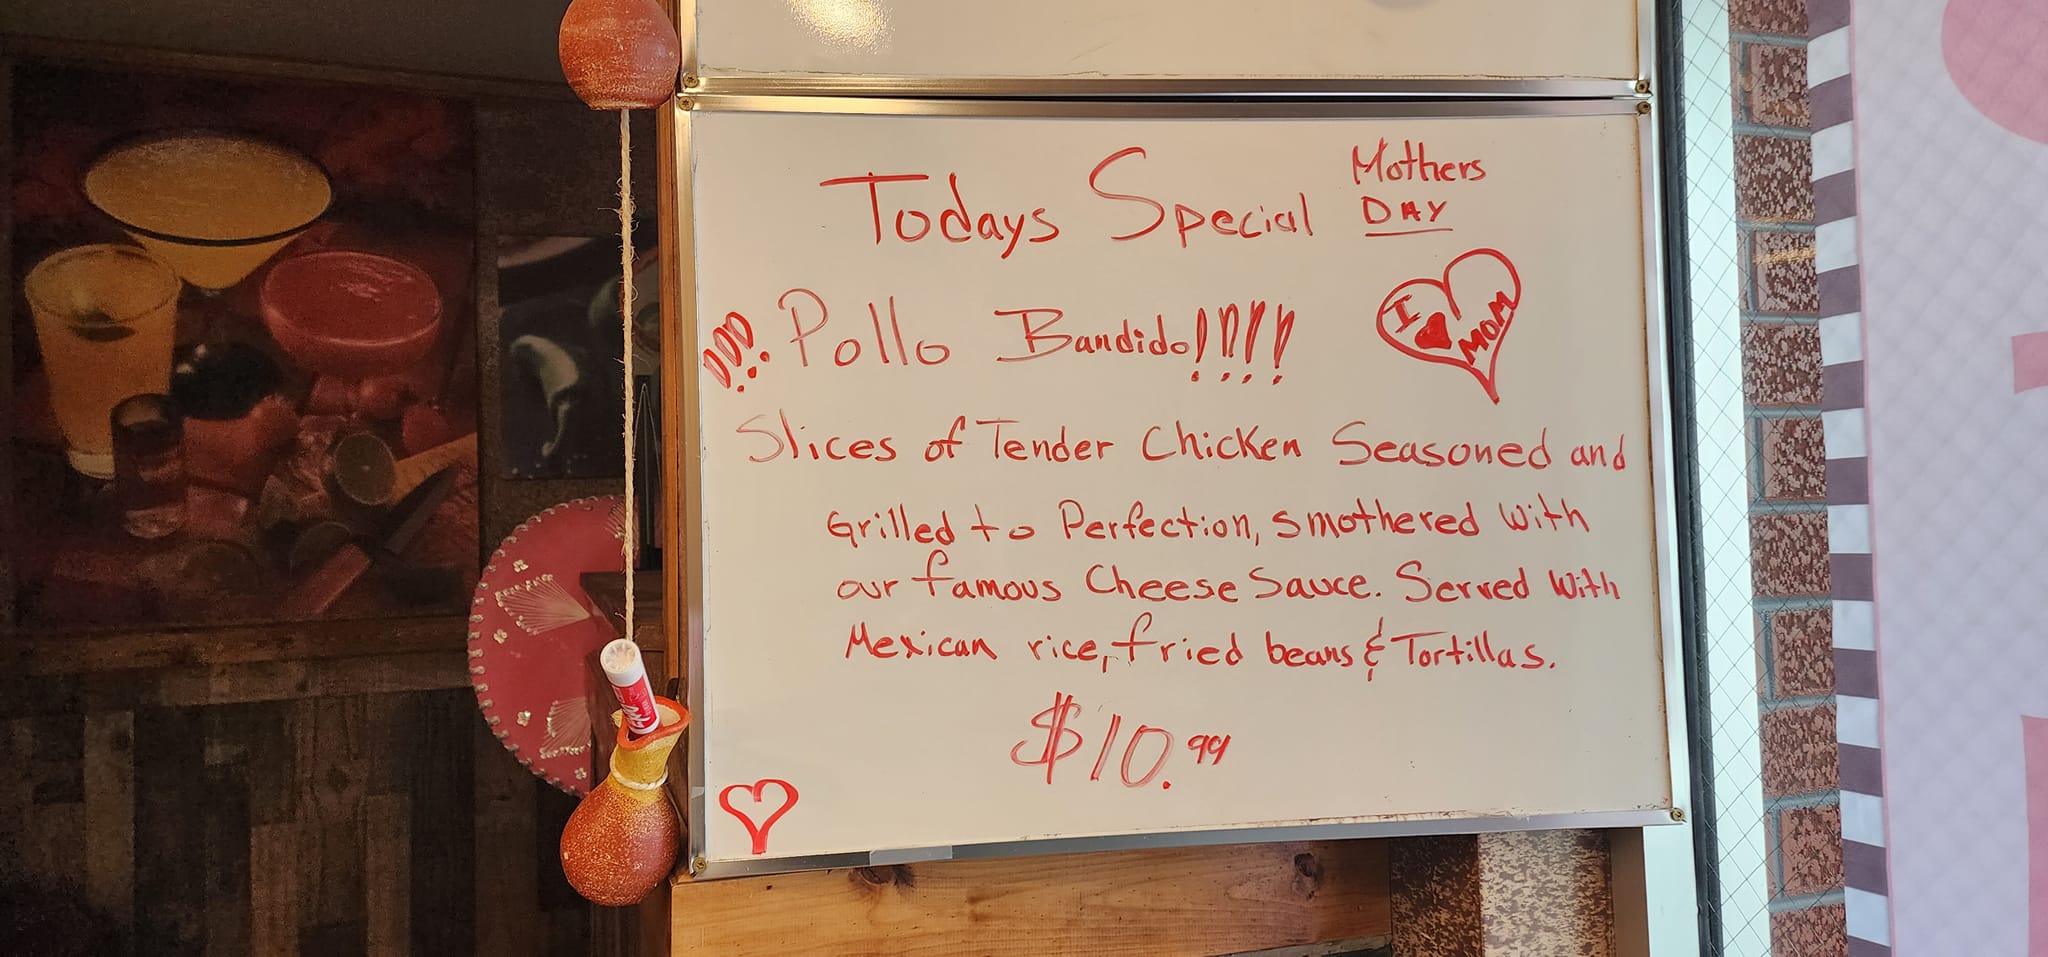 Todays Special Mothers
DAY
¡¡¡ Pollo Bandido!!!!
I ♥ MOM
Slices of Tender Chicken Seasoned and
Grilled to Perfection, smothered with
our famous Cheese Sauce. Served with
Mexican rice, fried beans & Tortillas.
$10.99